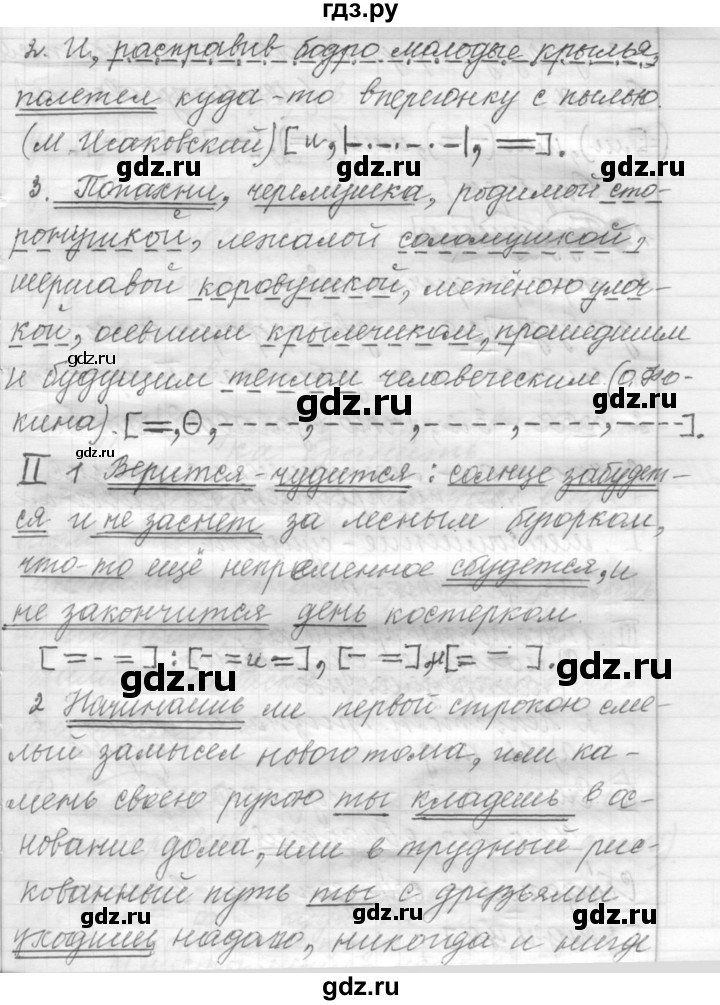 гдз.ру
2. И, расправив бодро молодые крылья,
полетел куда-то вперегонку с пылью.
(М. Исаковский) [и, |-.-.-.-|, ==].
gdz.ru gdz.ru
3. Попахни, черемушка, родимой сто-
ронушкой, лежалой соломушкой,
gdz.ru
шершавой коровушкой, метёною улоч-
кой, осевшим крылечиком, прошедшим
gdz.ru
и будущим теплом человеческим (О. Фо-
gdz.ru
кина). [=, Θ, ----, ----, ----, ----, ----].
gdz.ru
II 1 Верится-чудится: солнце забудет-
ся и не заснет за лесным бугорком,
что-то ещё непременное сбудется, и
не закончится день костерком.
[=-=]: [- = и =], [- =], и [= -].
gdz.ru gdz.ru
2 Начинаешь ли первой строкою сме-
лый замысел нового тома, или ка-
gdz.ru
мень своею рукою ты кладешь в ос-
нование дома, или в трудный рис-
gdz.ru
кованный путь ты с друзьями
gdz.ru gdz.ru
уходишь надолго, никогда и нигде